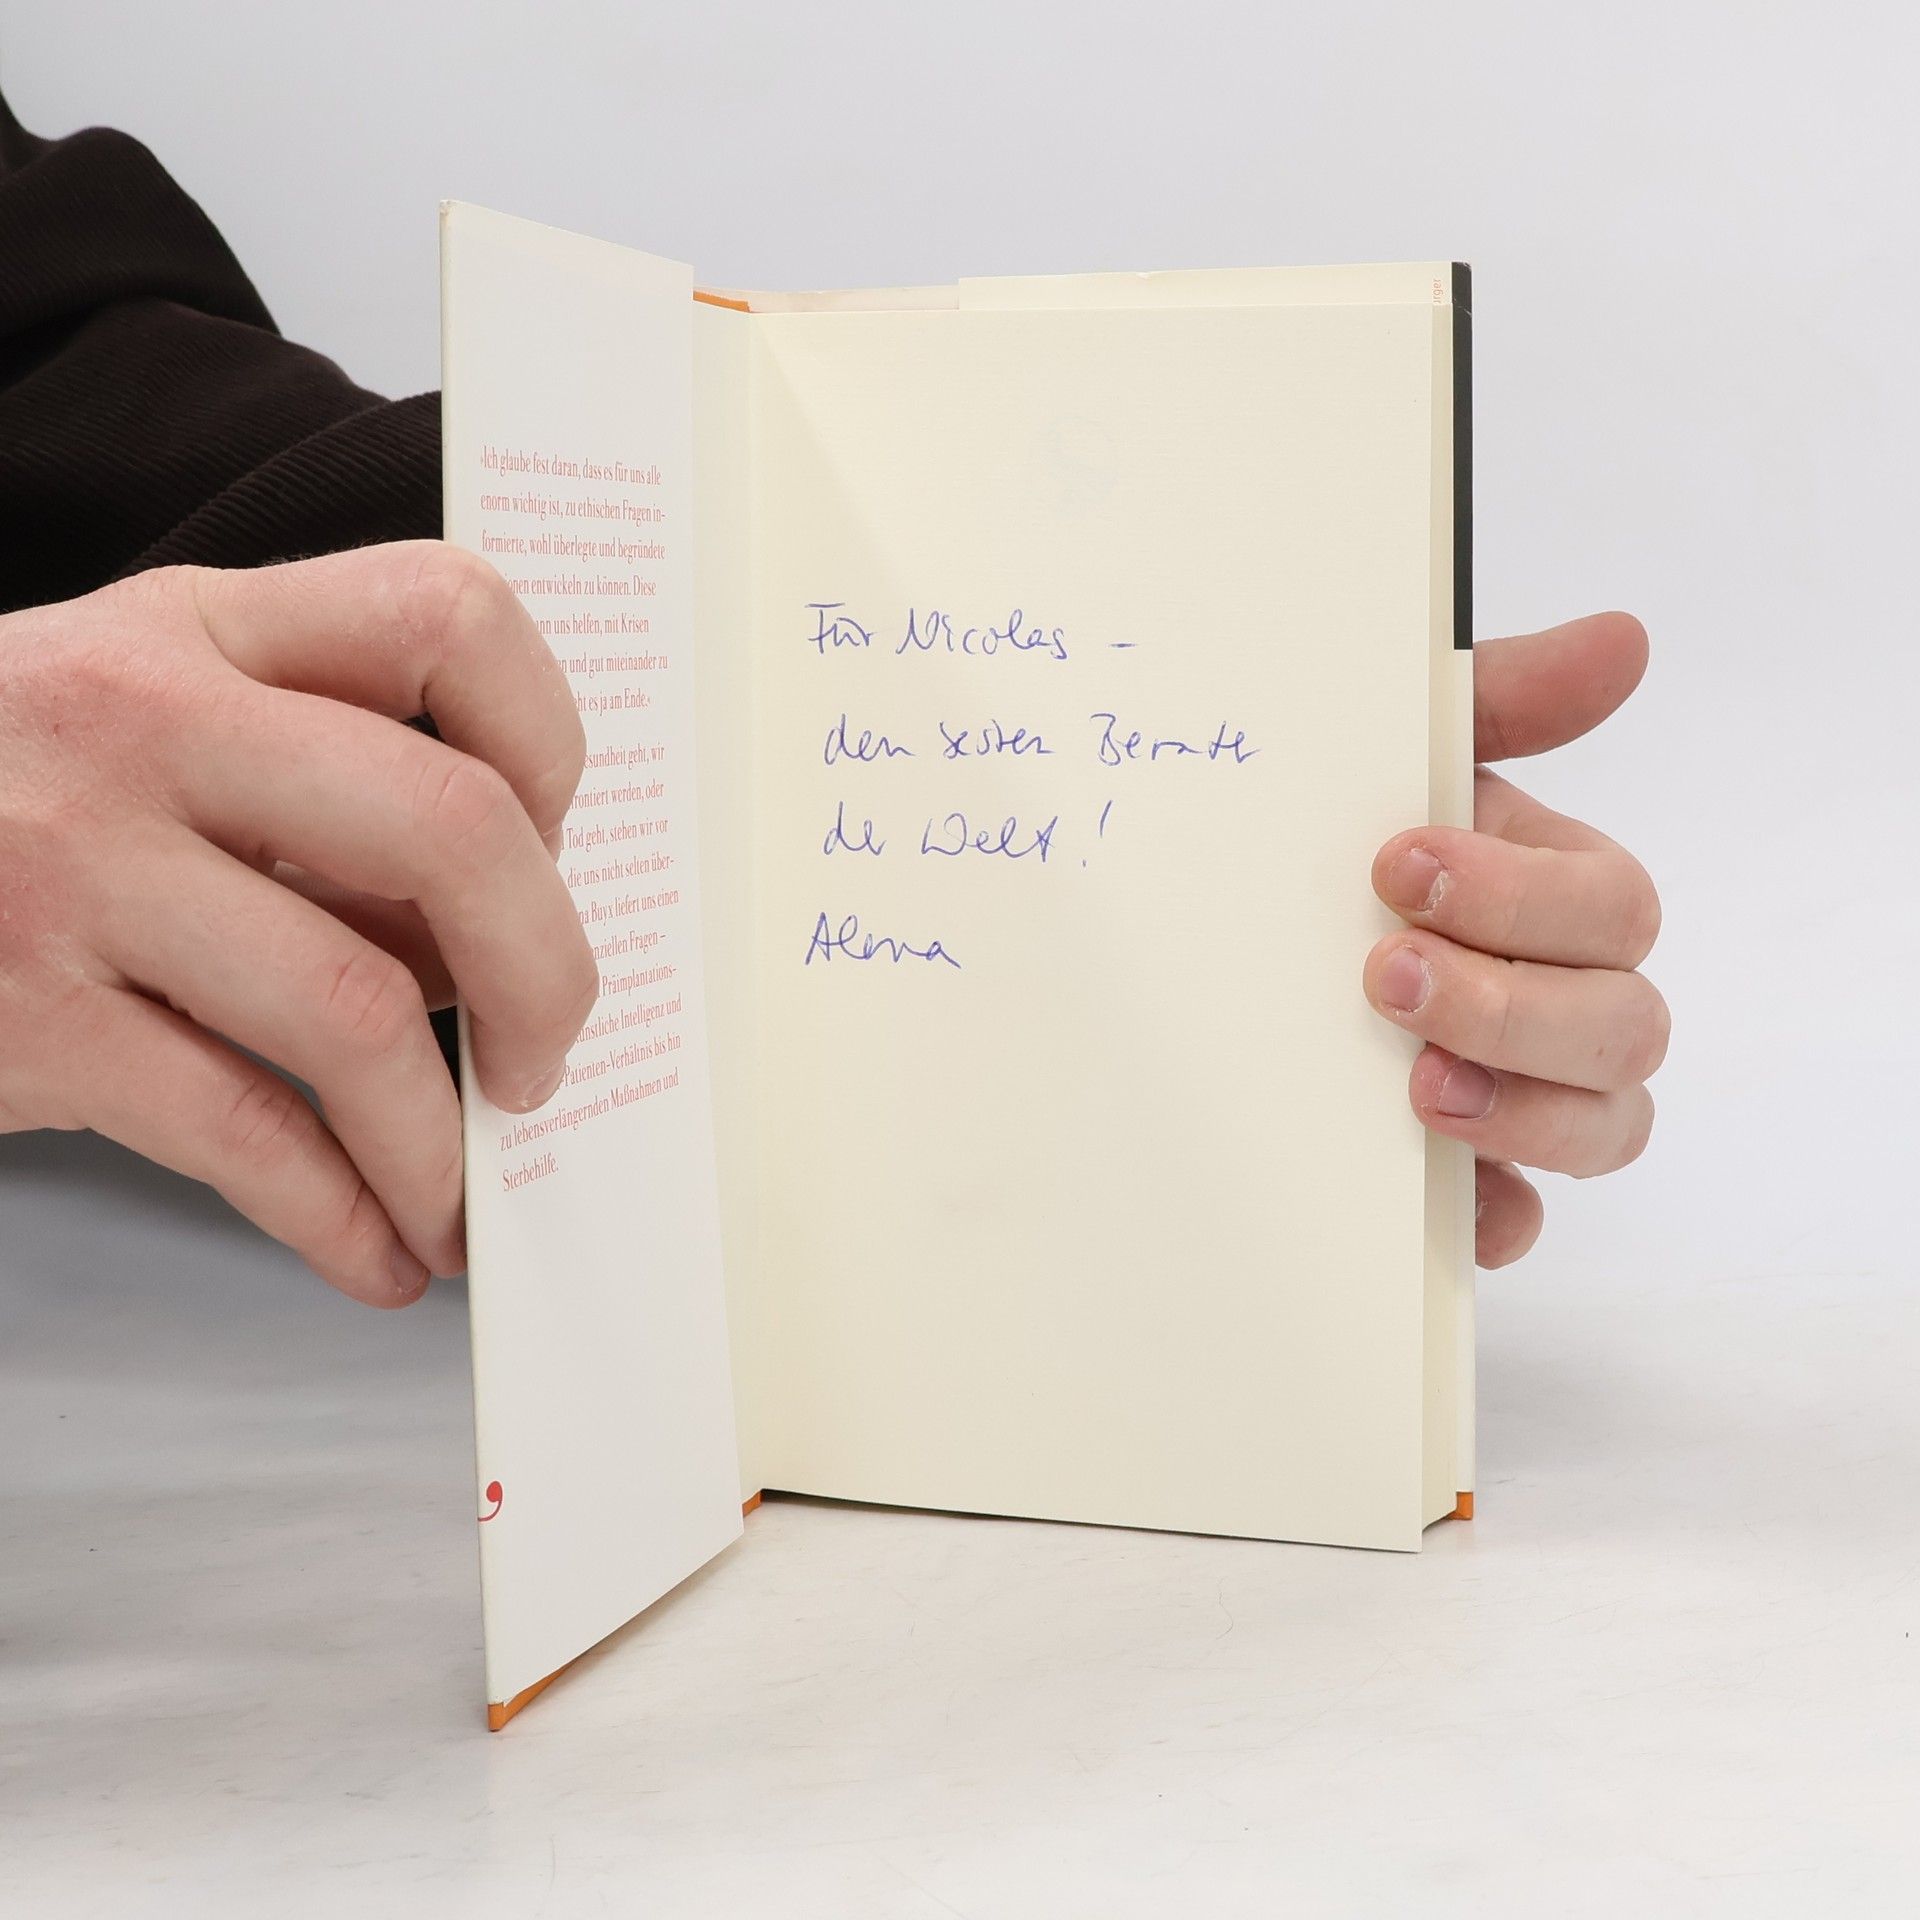 ›Ich glaube fest daran, dass es für uns alle
enorm wichtig ist, zu ethischen Fragen in-
formierte, wohl überlegte und begründete
entwickeln zu können. Diese
uns helfen, mit Krisen
und gut miteinander zu
es ja am Ende.‹
geht, wir
werden, oder
Tod geht, stehen wir vor
die uns nicht selten über-
Buyx liefert uns einen
Fragen –
Präimplantations-
Intelligenz und
-Patienten-Verhältnis bis hin
zu lebensverlängernden Maßnahmen und
Sterbehilfe.
Für Nicolas –
den besten Berater
der Welt!
Alena